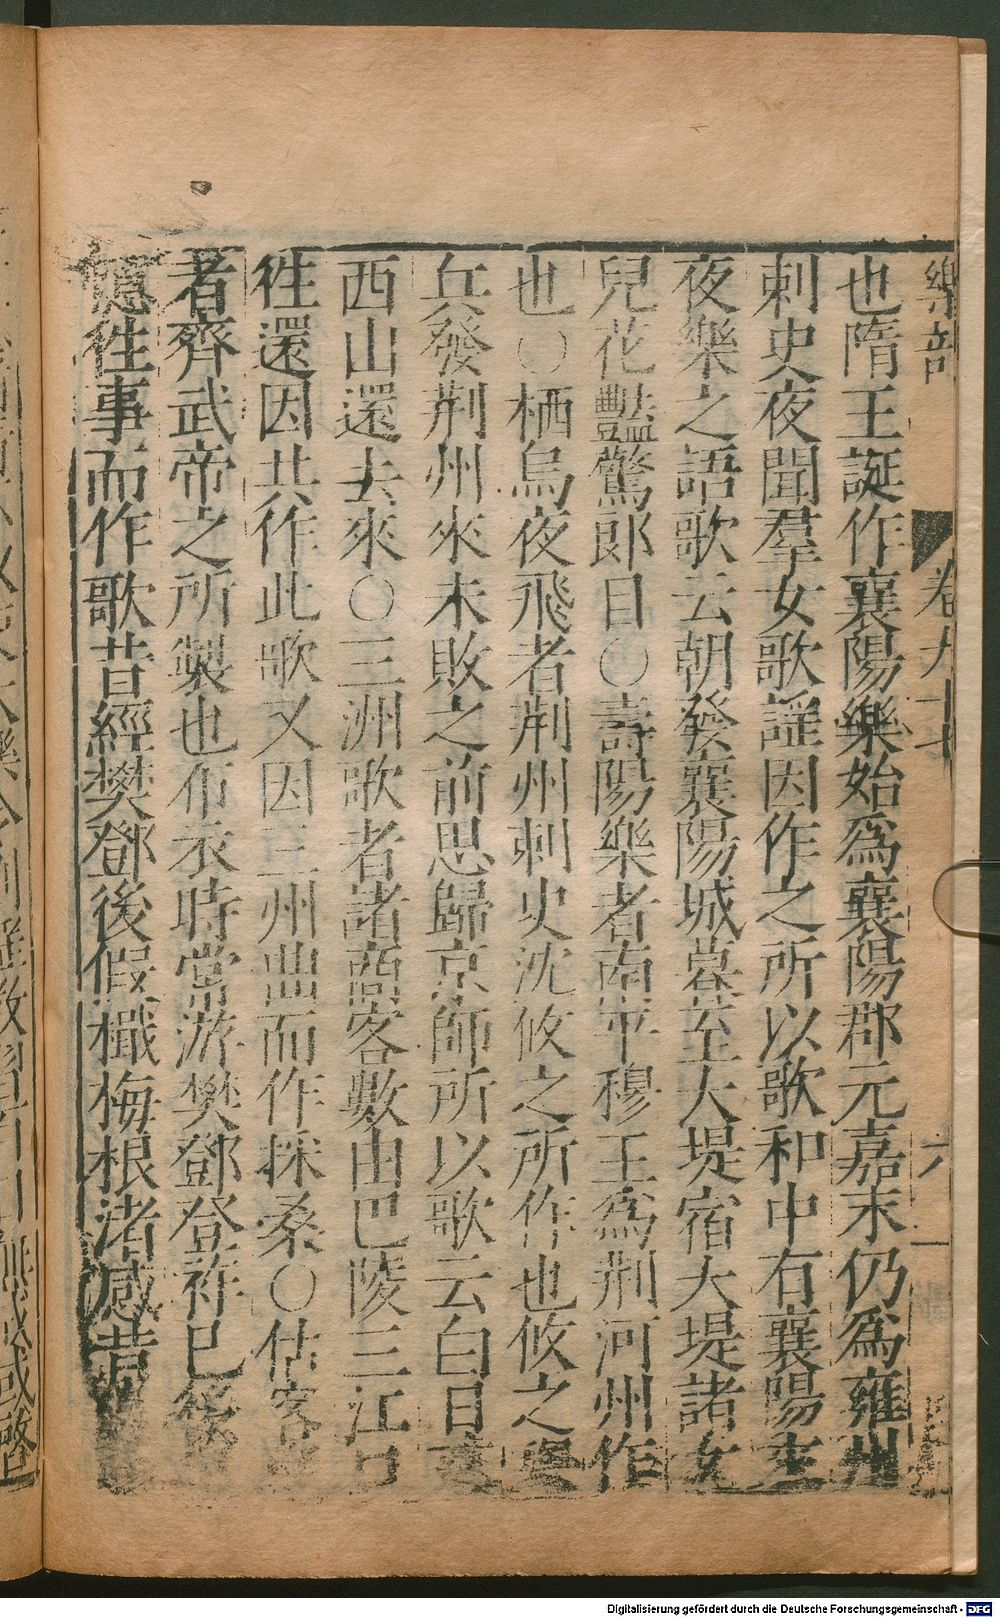 樂部
卷九十七
六
也隋王誕作襄陽樂始爲襄陽郡元嘉末仍爲雍州
刺史夜聞羣女歌謡因作之所以歌和中右襄陽來
夜樂之語歌云朝發襄陽城暮至大堤宿大堤諸女
兒花豔驚郎目○壽陽樂者南平穆王爲荆河州作
也○栖烏夜飛者荆州刺史沈攸之所作也攸之舉
兵發荆州來未敗之前思歸京師所以歌云白日落
西山還去來○三洲歌者諸商客數由巴陵三江口
徃還因共作此歌又因三州曲而作採桑○估客
者齊武帝之所製也布衣時常游樊鄧登祚已後
憶徃事而作歌昔經樊鄧後假檝梅根渚感昔
Digitalisierung gefördert durch die Deutsche Forschungsgemeinschaft - DFG